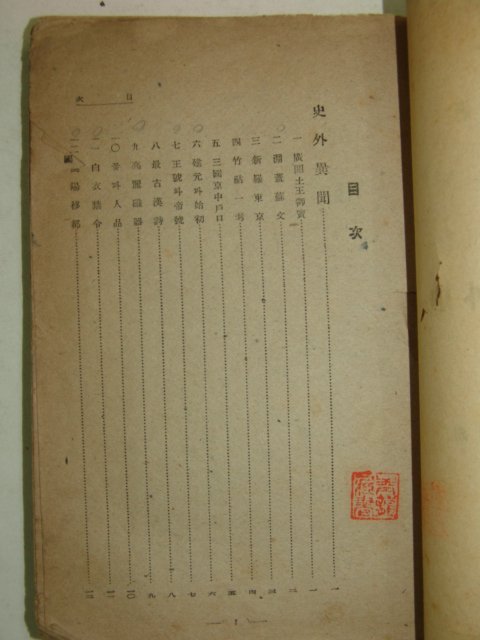 目次
史外異聞 一
一 廣開土王御寶 一
二 淵蓋蘇文
三 新羅東京
四 竹
五 三國京中戶口
六 建元과始初 六
七 王號와帝號 七
八 最古漢詩 八
九 高麗磁器 九
一〇 人品 一〇
一一 白衣禁令
一二 陽移都
目次
— 1 —